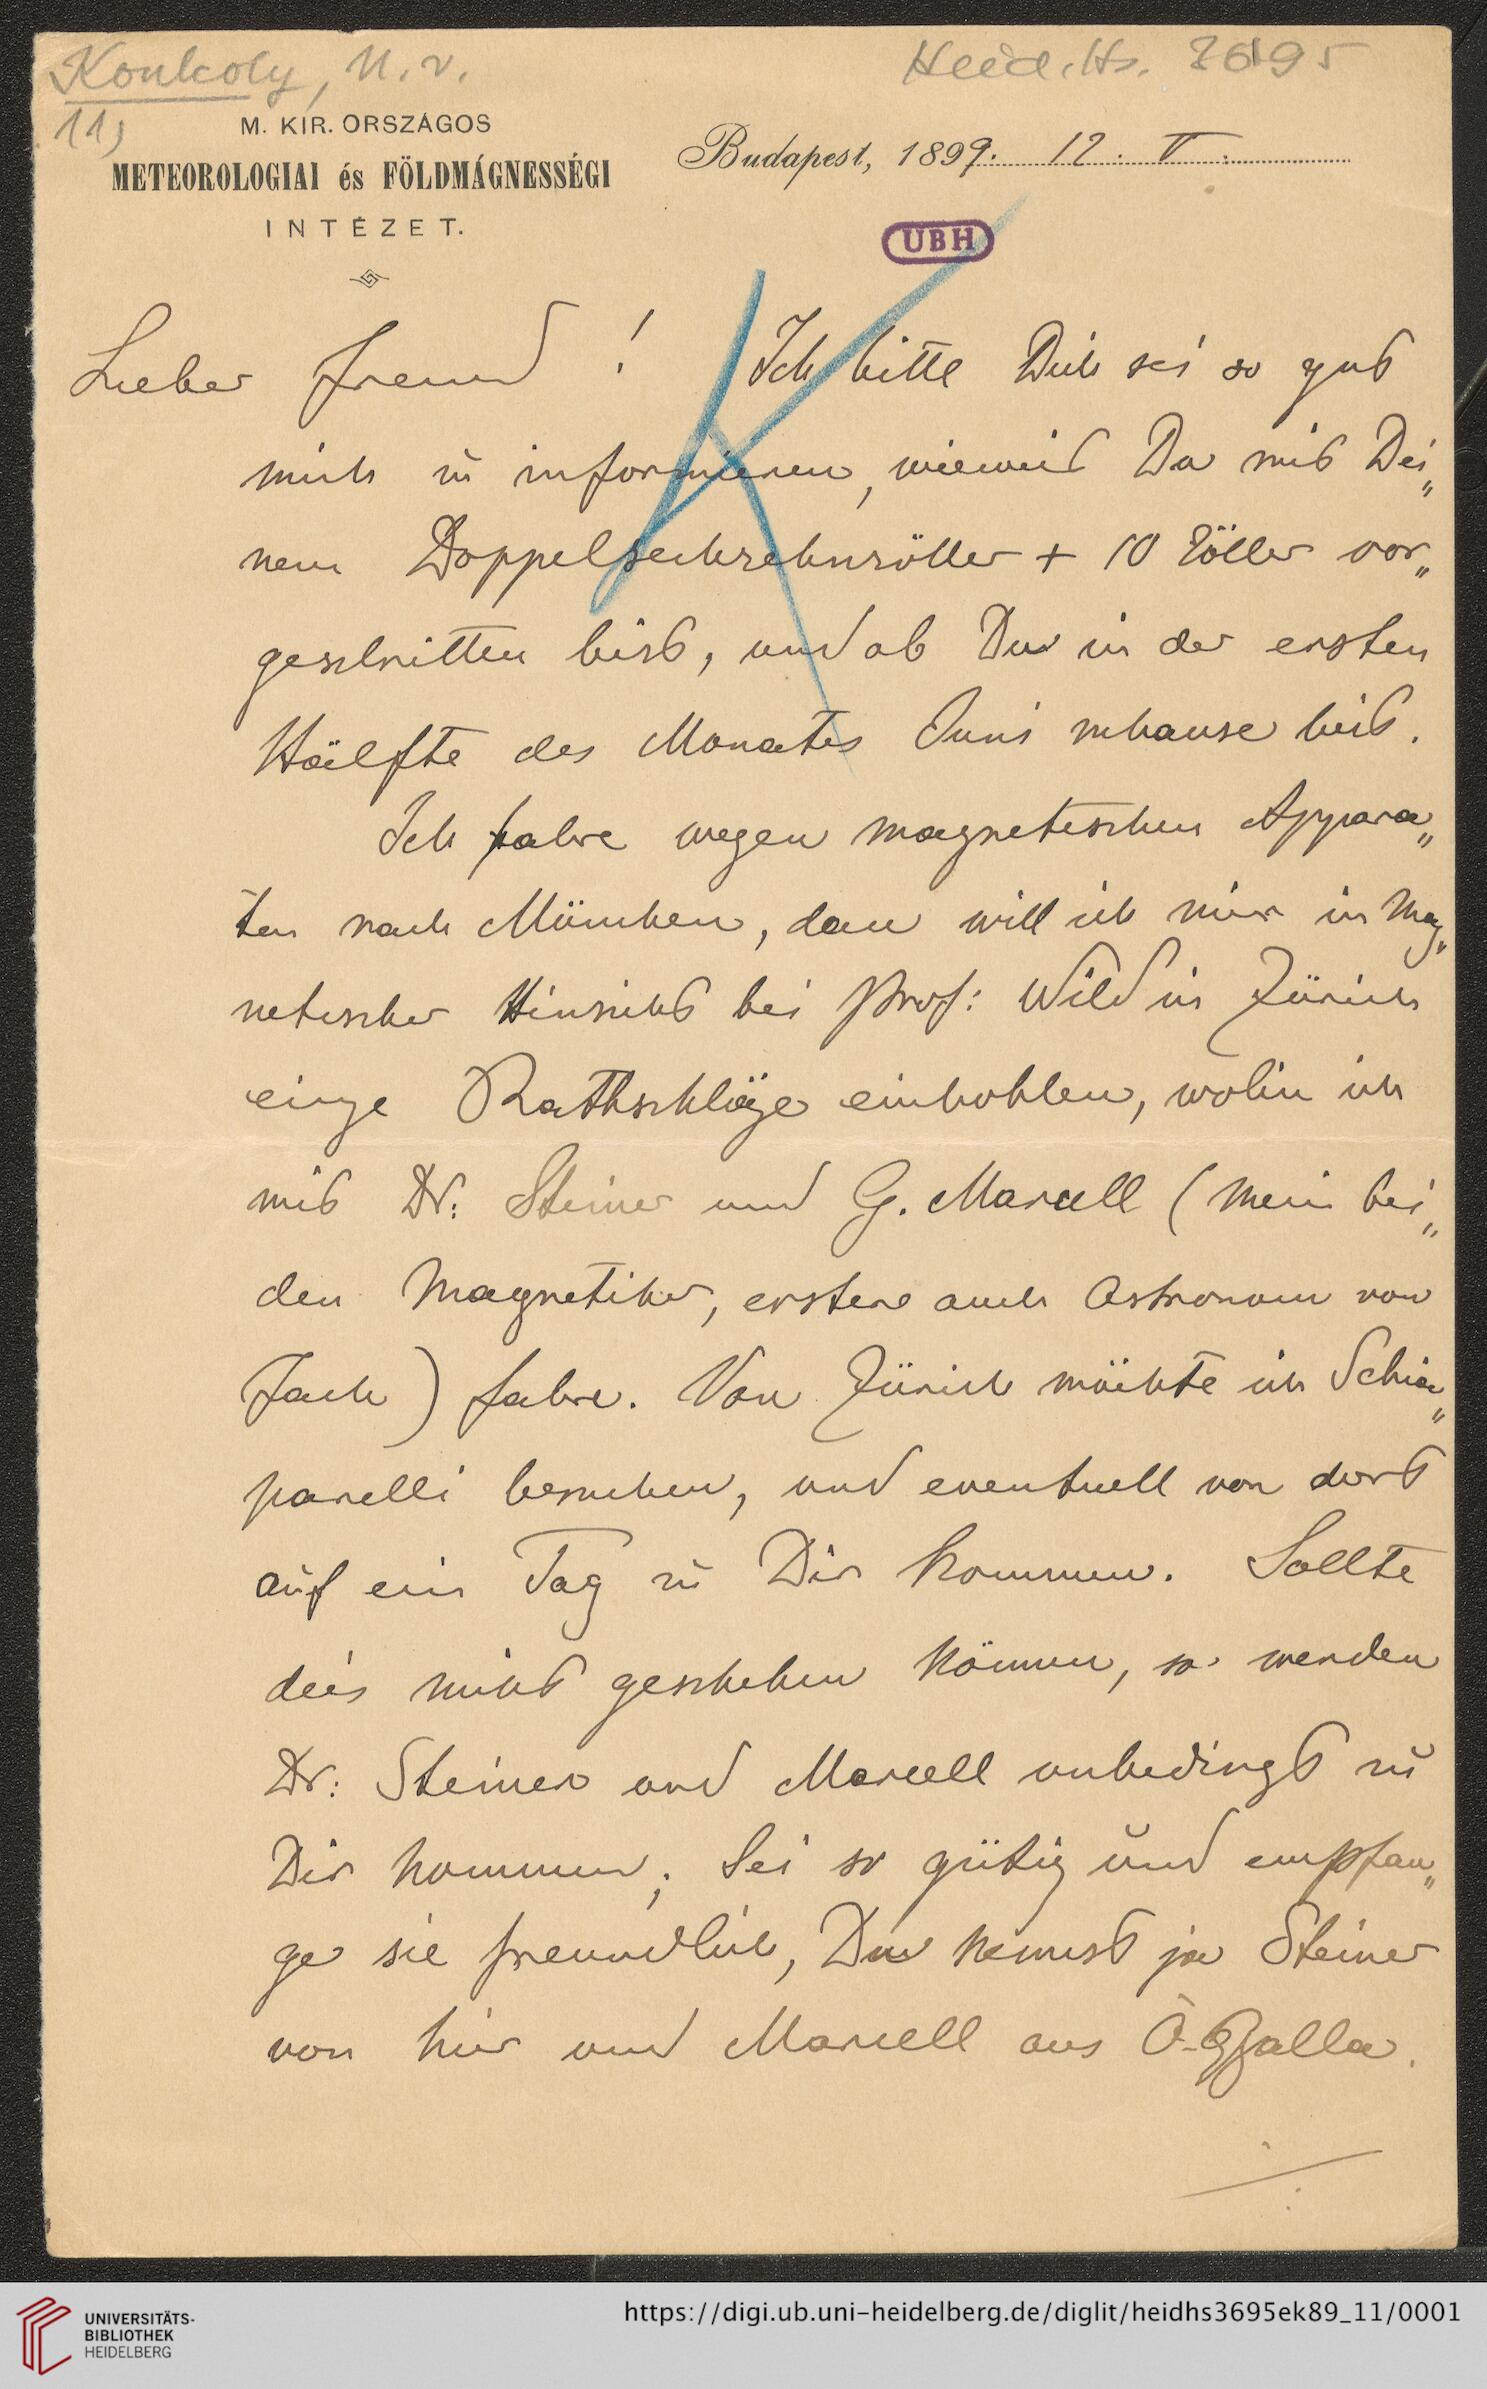 Konkoly, N. v.
Heid. Hs. 3695
11)
M. KIR. ORSZÁGOS
METEOROLOGIAI és FÖLDMÁGNESSÉGI
INTÉZET.
Budapest, 1899. 12. V.
UBH
Lieber Freund! Ich bitte Dich sei so gut
mich zu informieren, wieweit Du mit Dei„
nem Doppelsechzehnzöller + 10 Zöller vor„
geschritten bist, und ob Du in der ersten
Hälfte des Monates Juni zuhause bist.
Ich fahre wegen magnetischen Appara„
ten nach München, dan will ich mir in Mag„
netischer Hinsicht bei Prof: Wild in Zürich
einge Rathschläge einhohlen, wohin ich
mit Dr: Steiner und G. Marcell (mein bei„
den Magnetiker, erstere auch Astronom von
Fach) fahre. Von Zürich möchte ich Schia„
parelli besuchen, und eventuell von dort
auf ein Tag zu Dir kommen. Sollte
dies nicht geschehen können, so werden
Dr: Steiner und Marcell unbedingt zu
Dir kommen; Sei so gütig und empfan„
ge sie freundlich, Du kennst ja Steiner
von hier und Marcell aus Ó-Gyalla.
UNIVERSITÄTS-
BIBLIOTHEK
HEIDELBERG
https://digi.ub.uni-heidelberg.de/diglit/heidhs3695ek89_11/0001